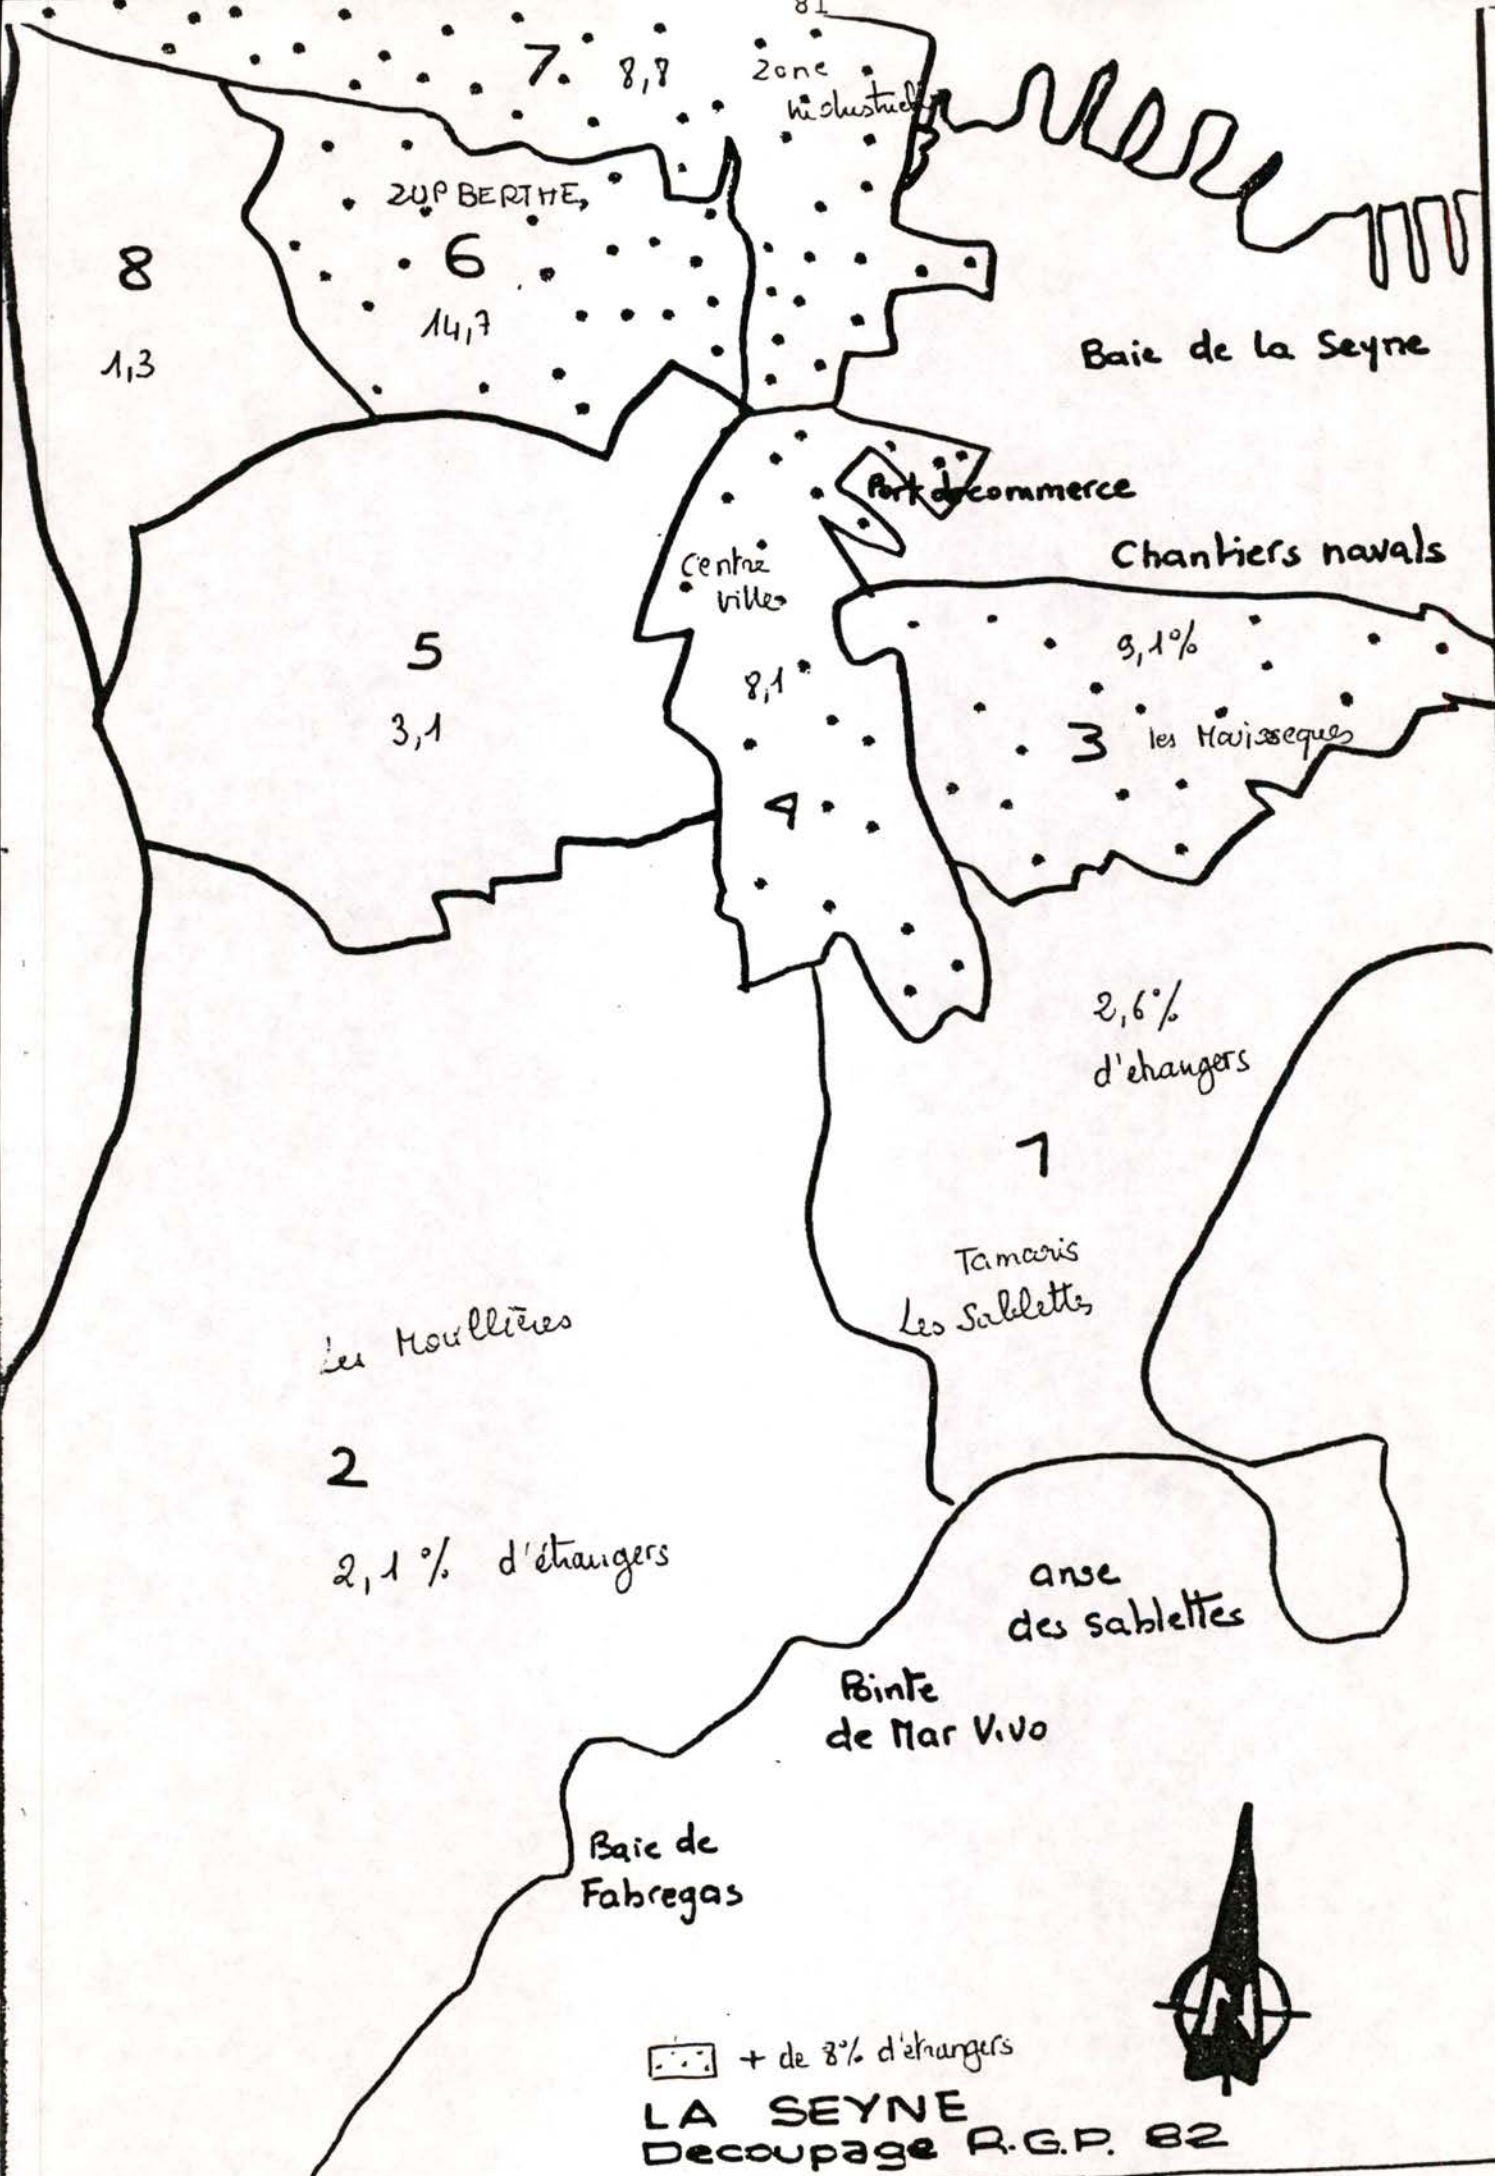 81
7
8,8
Zone
industrielle
ZUP BERTHE
6
14,7
8
1,3
Baie de la Seyne
Port de commerce
Chantiers navals
Centre
ville
8,1
4
5
3,1
9,1%
3
les Mouisseques
2,6%
d'étrangers
1
Tamaris
Les Sablettes
Les Moullières
2
2,1% d'étrangers
anse
des sablettes
Pointe
de Mar Vivo
Baie de
Fabregas
N
+ de 8% d'étrangers
LA SEYNE
Decoupage R.G.P. 82